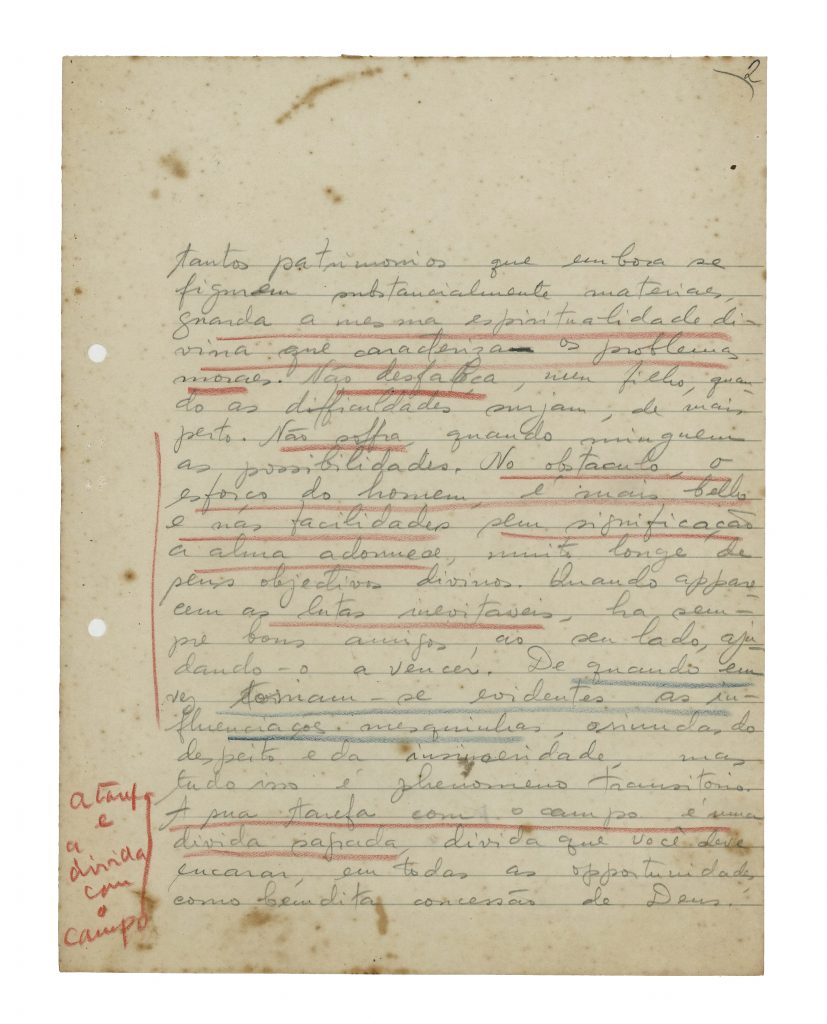 2
tantos patrimonios que embora se
figurem substancialmente materiaes,
guarda a mesma espiritualidade di-
vina que caracteriza os problemas
moraes. Não desfaleça, meu filho, quan-
do as difficuldades surjam, de mais
perto. Não soffra, quando minguem
as possibilidades. No obstaculo, o
esforço do homem, é mais bello
e nas facilidades sem significação
a alma adormece, muito longe de
seus objectivos divinos. Quando appare-
cem as lutas inevitaveis, ha sem-
pre bons amigos, ao seu lado, aju-
dando-o a vencer. De quando em
vez tornam-se evidentes as in-
fluenciações mesquinhas, oriundas do
despeito e da insinceridade, mas
tudo isso é phenomeno transitorio.
A sua tarefa com o campo é uma
divida sagrada, divida que você deve
encarar, em todas as opportunidades
como bemdita concessão de Deus.
a tarefa
e
a
divida
com
o
campo